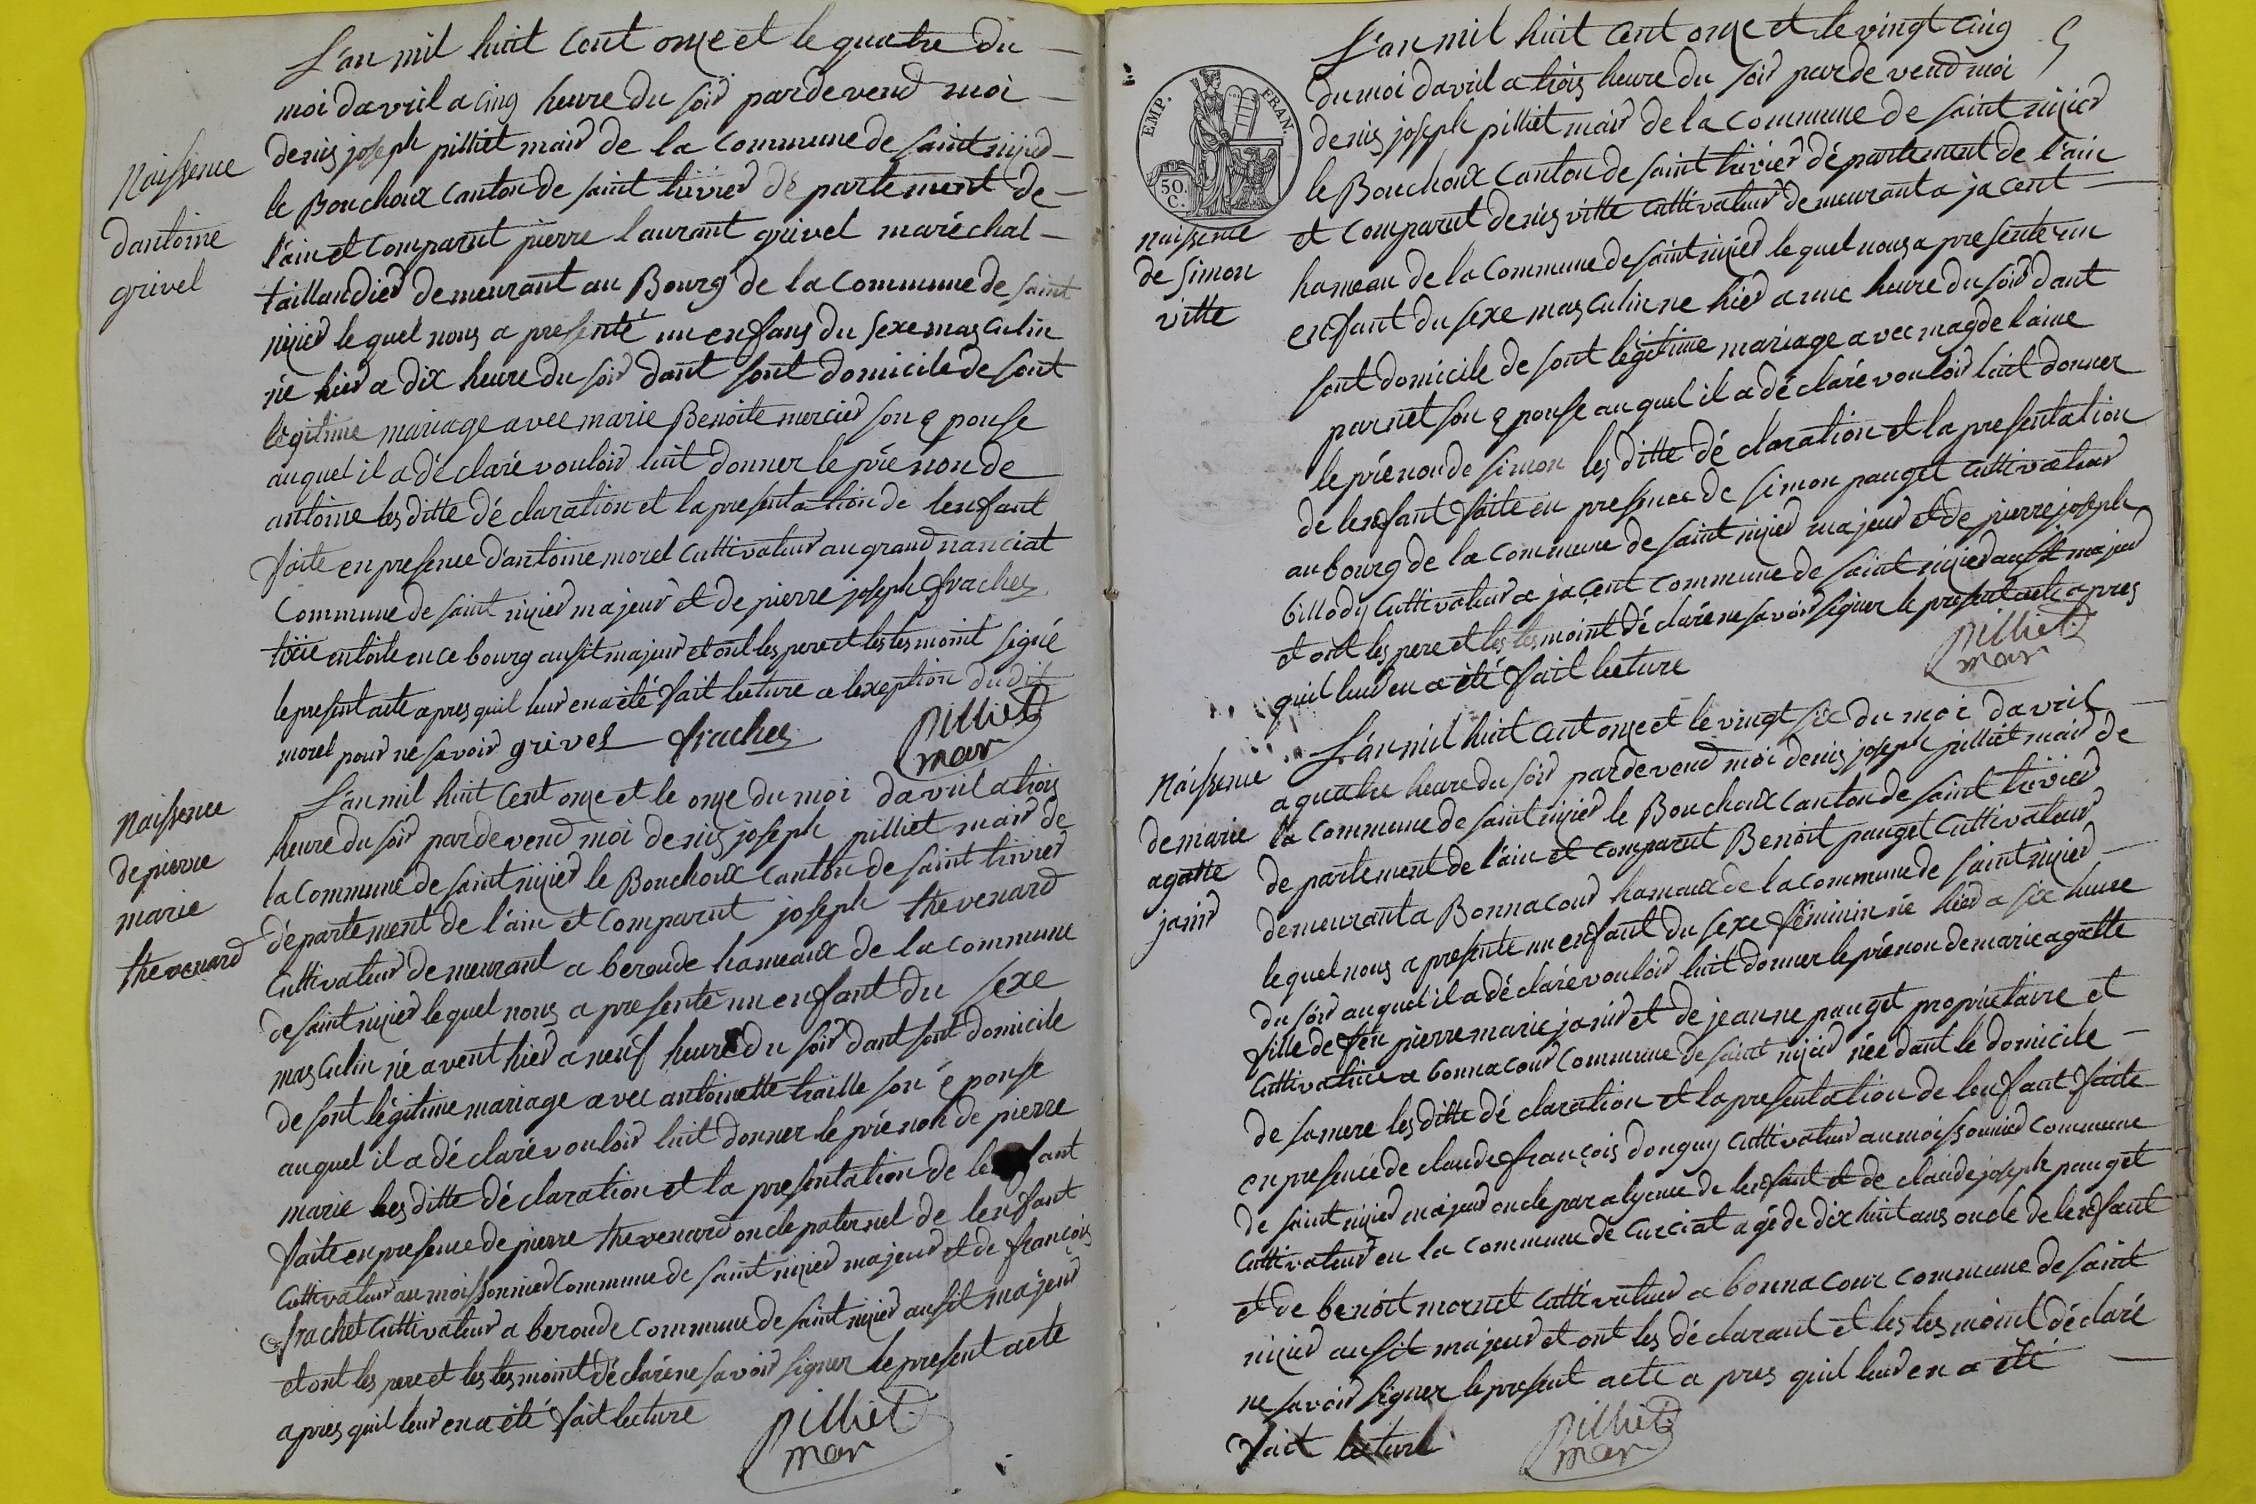 Naissence
dantoine
grivel
L'an mil huit cent onze et le quatre du
moi davril a cinq heure du soir pardevend moi
denis joseph pilliet mair de la commune de saint nizier
le Bouchoux canton de saint trivier département de
l'ain et comparut pierre laurant grivel maréchal
taillandier demeurant au Bourg de la commune de saint
nizier lequel nous a presenté un enfans du sexe masculin
né hier a dix heure du soir dant sont domicile de sont
légitime mariage avec marie Benoite mercier son épouse
auquel il a déclaré vouloir luit donner le prénon de
antoine les ditte déclaration et la presentation de lenfant
faite en presence d'antoine morel cultivateur au grand nanciat
commune de saint nizier majeur et de pierre joseph frachez
en toile en ce bourg ausit majeur et ont les pere et les tesmoint signé
le present acte apres quil leur en a été fait lecture a lexeption dudit
morel pour ne savoir grivel frachez pilliet
mar
Naissence
de pierre
marie
thevenard
L'an mil huit cent onze et le onze du moi davril a trois
heure du soir pardevend moi denis joseph pilliet mair de
la commune de saint nizier le Bouchoux canton de saint trivier
département de l'ain et comparut joseph thevenard
cultivateur demeurant a beroude hameaux de la commune
de saint nizier lequel nous a presenté un enfant du sexe
masculin né avent hier a neuf heure du soir dant sont domicile
de sont légitime mariage avec antoinette traille son épouse
auquel il a déclaré vouloir luit donner le prénon de pierre
marie les ditte déclaration et la presentation de lenfant
faite en presence de pierre thevenard oncle paternel de lenfant
cultivateur au moissonnier commune de saint nizier majeur et de françois
frachet cultivateur a beroude commune de saint nizier ausit majeur
et ont les pere et les tesmoint déclaré ne savoir signer le present acte
apres quil leur en a été fait lecture pilliet
mar
5
EMP. FRAN.
50.
C.
naissence
de simon
vitte
L'an mil huit cent onze et le vingt cinq
du moi davril a trois heure du soir pardevend moi
denis joseph pilliet mair de la commune de saint nizier
le Bouchoux canton de saint trivier département de l'ain
et comparut denis vitte cultivateur demeurant a jacent
hameau de la commune de saint nizier lequel nous a presente un
enfant du sexe masculin ne hier a une heure du soir dant
sont domicile de sont légitime mariage avec magdelaine
parnet son épouse auquel il a déclaré vouloir luit donner
le prénon de simon les ditte déclaration et la presentation
de lenfant faite en presence de simon pauget cultivateur
au bourg de la commune de saint nizier majeur et de pierre joseph
billody cultivateur a jacent commune de saint nizier ausit majeur
et ont les pere et les tesmoint déclaré ne savoir signer le present acte apres
quil leur en a été fait lecture pilliet
mar
Naissence
de marie
agatte
janir
L'an mil huit cent onze et le vingt six du moi davril
a quatre heure du soir pardevend moi denis joseph pilliet mair de
la commune de saint nizier le Bouchoux canton de saint trivier
departement de l'ain et comparut Benoit pauget cultivateur
demeurant a Bonnacour hameaux de la commune de saint nizier
lequel nous a presente un enfant du sexe féminin né hier a six heure
du soir auquel il a déclaré vouloir luit donner le prénon de marie agatte
fille de feu pierre marie janir et de jeanne pauget propriétaire et
cultivatrice a bonnacour commune de saint nizier née dant le domicile
de sa mere les ditte déclaration et la presentation de lenfant faite
en presence de claude françois donguy cultivateur au moissonnier commune
de saint nizier majeur oncle par alyence de lenfant et de claude joseph pauget
cultivateur en la commune de curciat agé de dix huit ans oncle de lenfant
et de benoit mornet cultivateur a bonnacour commune de saint
nizier ausit majeur et ont les déclarant et les tesmoint déclaré
ne savoir signer le present acte a pres quil leur en a été
fait lecture pilliet
mar